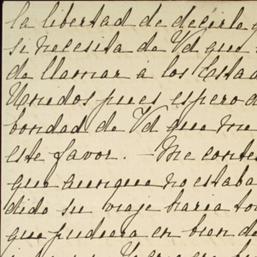 la libertad de decirle q
se necesita de Vd que
de llamar á los Esta
Unidos pues espero d
bondad de Vd que me
este favor. — Me conte
que aunque no estaba
dido su viaje haria to
que pudiera en bien de